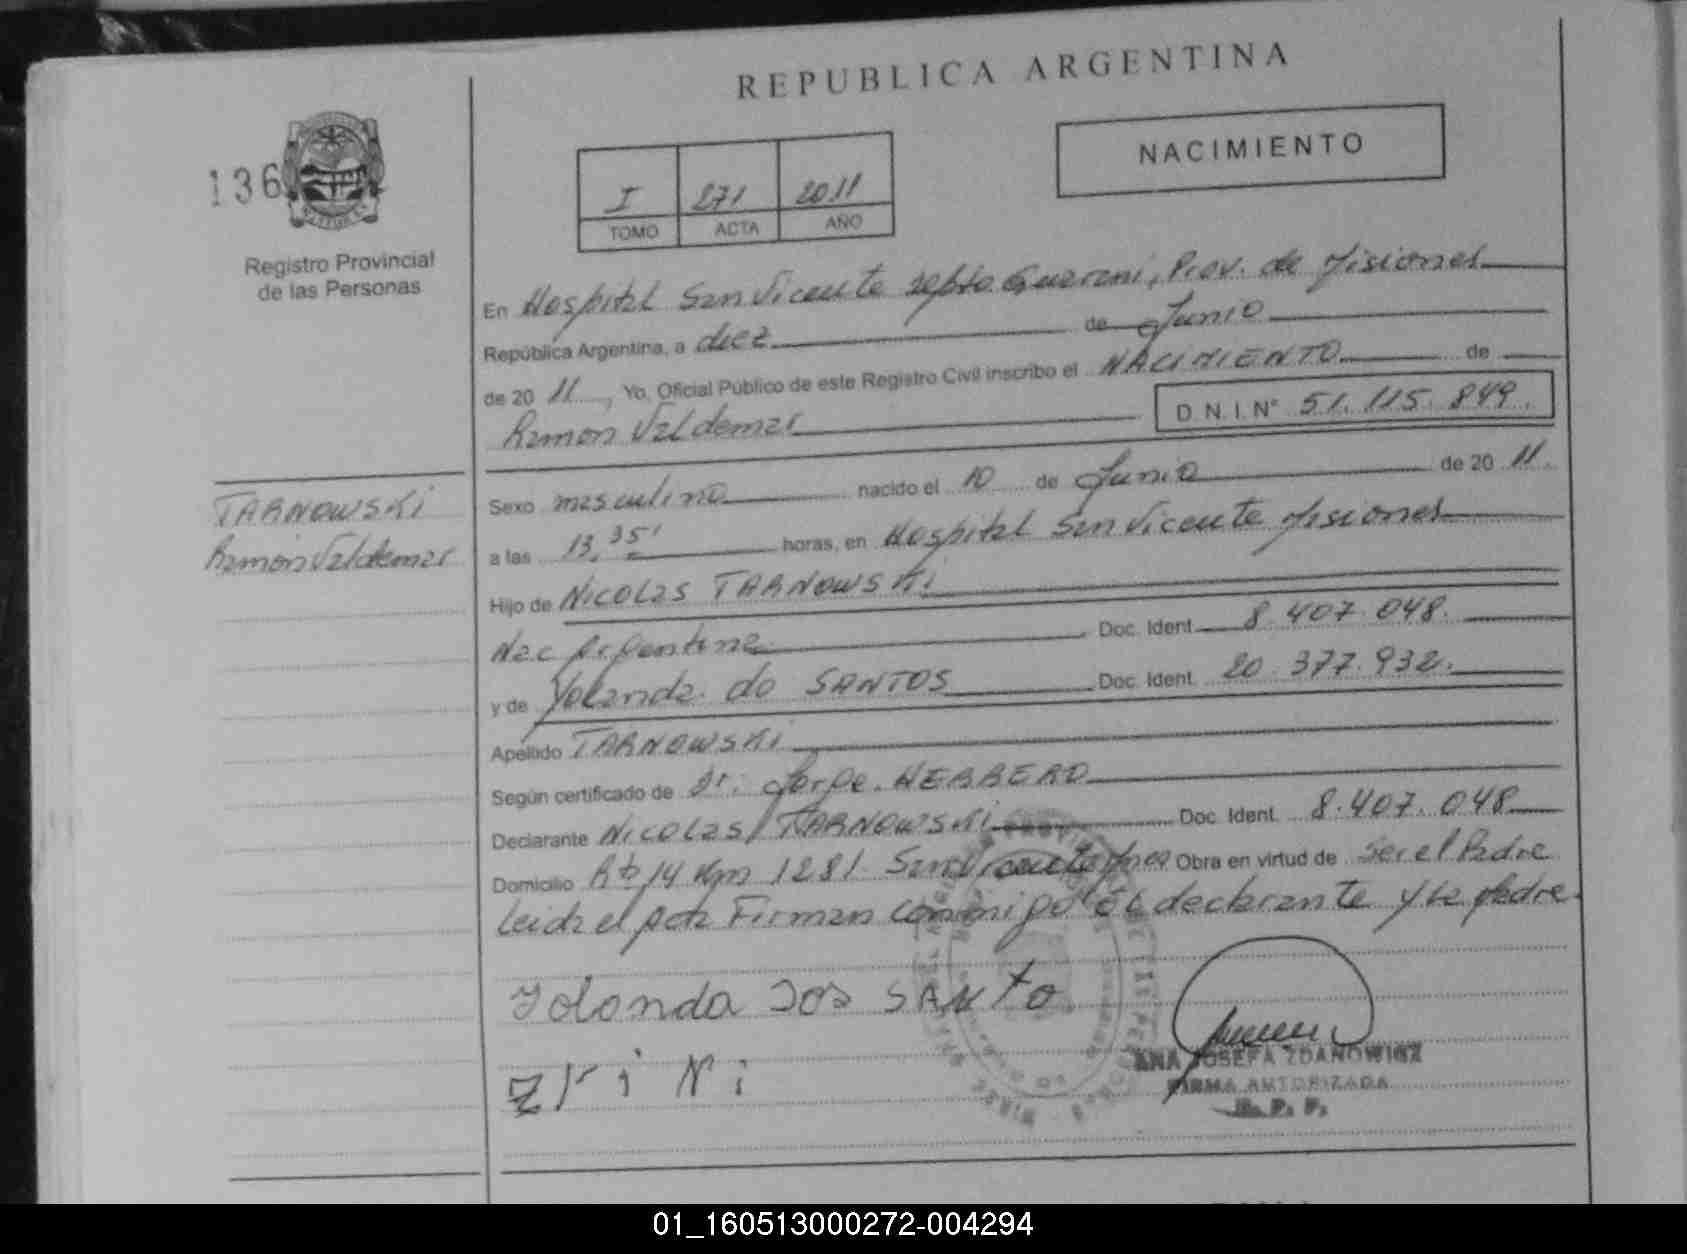 REPUBLICA ARGENTINA
NACIMIENTO
136
I 271 2011
TOMO ACTA AÑO
Registro Provincial
de las Personas
En Hospital San Vicente Depto Guarani, Prov. de Misiones
República Argentina, a diez de Junio
de 20 11, Yo, Oficial Público de este Registro Civil inscribo el NACIMIENTO de
Ramon Valdemar D.N.I.N° 51.115.849.
TARNOWSKi
Ramón Valdemar
Sexo masculino nacido el 10 de Junio de 20 11.
a las 13,35' horas, en Hospital San Vicente Misiones
Hijo de NICOLAS TARNOWSKi
Nac Argentina Doc. Ident. 8.407.048.
y de Yolanda do SANTOS Doc. Ident. 20.377.932.
Apellido TARNOWSKi
Según certificado de Dr. Jorge. HERRERO
Declarante NICOLAS TARNOWSKi Doc. Ident. 8.407.048
Domicilio Rta 14 Km 1281. San Vicente Mnes Obra en virtud de ser el Padre
Leida el acta Firman conmigo el declarante y la Madre.
Yolonda DOS SANTO
ANA JOSEFA ZDANOWICZ
FIRMA AUTORIZADA
R. P. P.
01_160513000272-004294